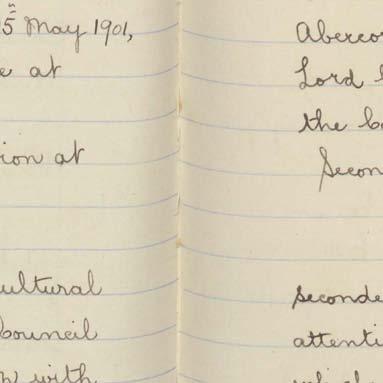 5 May 1901,
e at
ion at
ultural
Council
with
Aberco
Lord
the
Secon
seconde
attenti